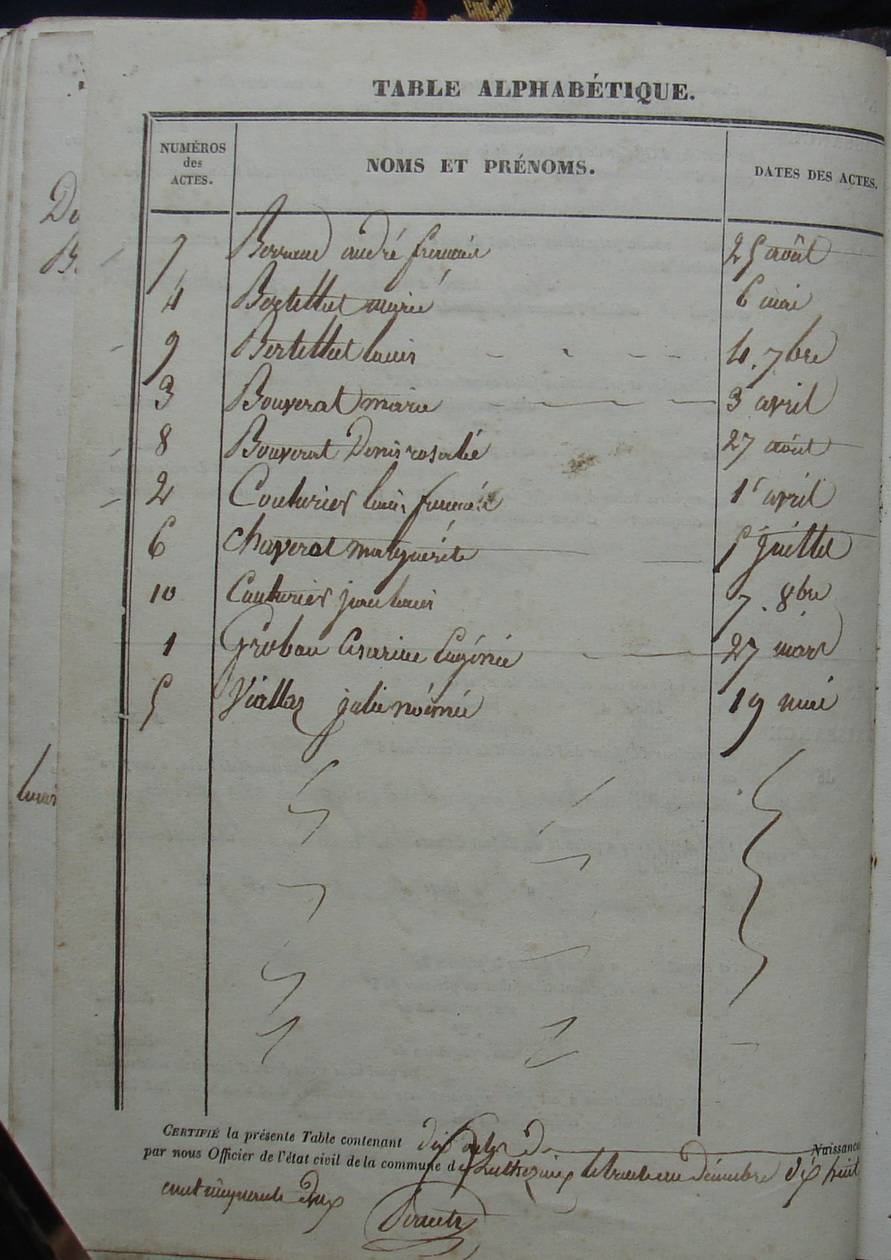 TABLE ALPHABÉTIQUE.
NUMÉROS des ACTES. NOMS ET PRÉNOMS. DATES DES ACTES.
7 andré 25 août
4 Bertettet marie 6 mai
9 Bertettet louis 4. 7bre
3 Bouverat marie 3 avril
8 Bouverat Denis rosalie 27 août
2 Couturier louis 1r avril
6 Chaverat marguérite juillet
10 Couturier jean louis 7. 8bre
1 Eugénie 27 mars
5 julie noémie 19 mai
Du
B.
louis
CERTIFIÉ la présente Table contenant dix actes de Naissance
par nous Officier de l'état civil de la commune de le trente un Décembre dix huit
cent cinquante deux